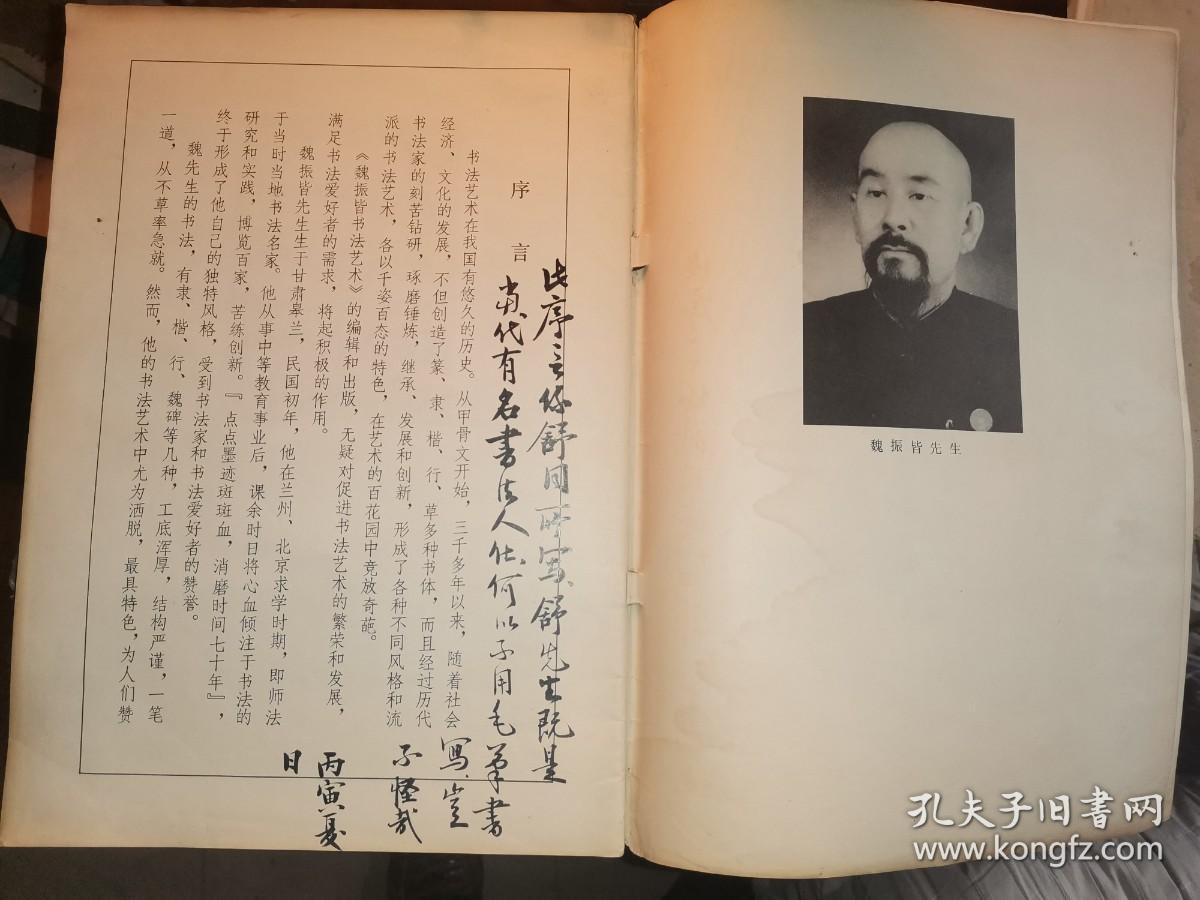 序言
书法艺术在我国有悠久的历史。从甲骨文开始，三千多年以来，随着社会
经济、文化的发展，不但创造了篆、隶、楷、行、草多种书体，而且经过历代
书法家的刻苦钻研，琢磨锤炼，继承、发展和创新，形成了各种不同风格和流
派的书法艺术，各以千姿百态的特色，在艺术的百花园中竞放奇葩。
《魏振皆书法艺术》的编辑和出版，无疑对促进书法艺术的繁荣和发展，
满足书法爱好者的需求，将起积极的作用。
魏振皆先生生于甘肃皋兰，民国初年，他在兰州、北京求学时期，即师法
于当时当地书法名家。他从事中等教育事业后，课余时日将心血倾注于书法的
研究和实践，博览百家，苦练创新。『点点墨迹斑斑血，消磨时间七十年』，
终于形成了他自己的独特风格，受到书法家和书法爱好者的赞誉。
魏先生的书法，有隶、楷、行、魏碑等几种，工底浑厚，结构严谨，一笔
一道，从不草率急就。然而，他的书法艺术中尤为洒脱，最具特色，为人们赞
此序言係舒同所寫、舒先生既是
當代有名書法人仕、何以不用毛筆書
寫、豈
不怪哉
丙寅夏
日
魏振皆先生
孔夫子旧书网
www.kongfz.com